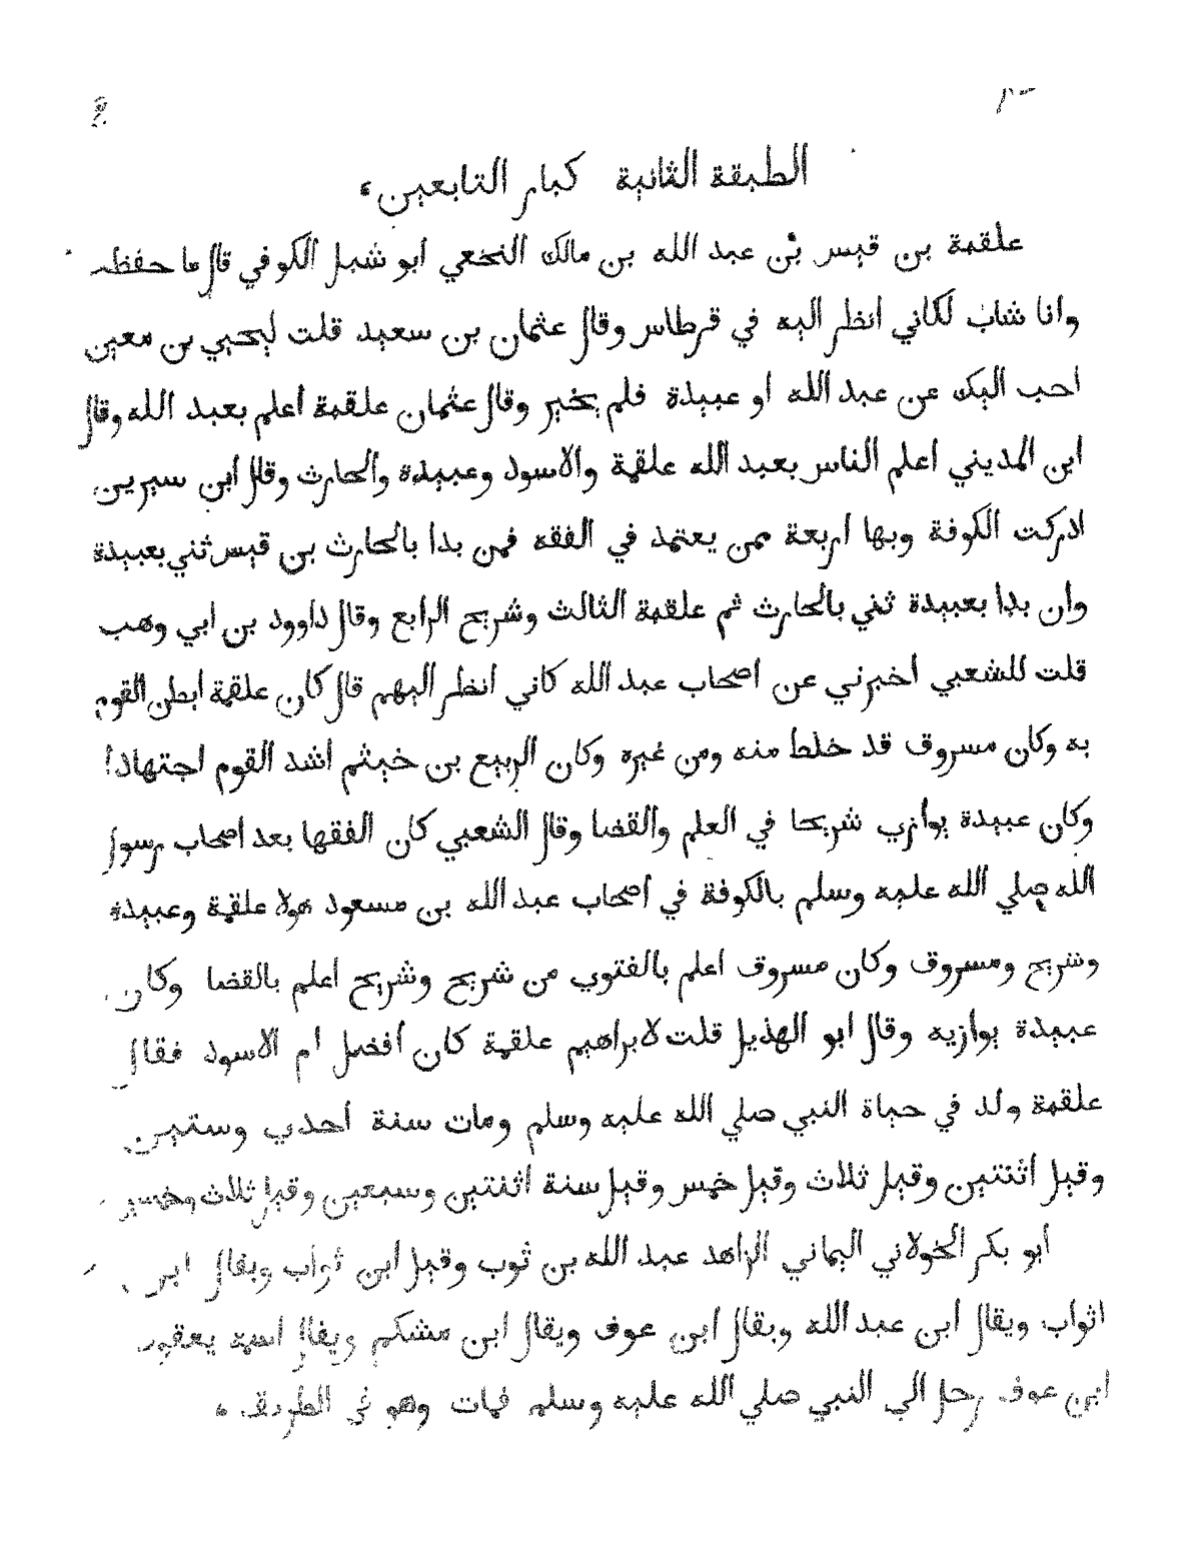 الطبقة الثانية كبار التابعين
علقمة بن قيس بن عبد الله بن مالك النخعي ابو شبل الكوفي قال ما حفظه
وانا شاب لكاني انظر اليه في قرطاس وقال عثمان بن سعيد قلت ليحيي بن معين
احب اليك عن عبد الله او عبيدة فلم يخير وقال عثمان علقمة أعلم بعبد الله وقال
ابن المديني اعلم الناس بعبد الله علقمة والاسود وعبيدة والحارث وقال ابن سيرين
ادركت الكوفة وبها اربعة ممن يعتمد في الفقه فمن بدا بالحارث بن قيس ثني بعبيدة
وان بدا بعبيدة ثني بالحارث ثم علقمة الثالث وشريح الرابع وقال داوود بن ابي وهب
قلت للشعبي أخبرني عن اصحاب عبد الله كاني انظر اليهم قال كان علقمة ابطن القوم
به وكان مسروق قد خلط منه ومن غيره وكان الربيع بن خيثم اشد القوم اجتهادا
وكان عبيدة يوازي شريحا في العلم والقضا وقال الشعبي كان الفقها بعد اصحاب رسول
الله صلي الله عليه وسلم بالكوفة في أصحاب عبد الله بن مسعود هولا علقمة وعبيدة
وشريح ومسروق وكان مسروق اعلم بالفتوي من شريح وشريح اعلم بالقضا وكان
عبيدة يوازيه وقال ابو الهذيل قلت لابراهيم علقمة كان أفضل ام الاسود فقال
علقمة ولد في حياة النبي صلي الله عليه وسلم ومات سنة احدي وستين
وقيل اثنتين وقيل ثلاث وقيل خمس وقيل سنة اثنتين وسبعين وقيل ثلاث وخمسين
أبو بكر الخولاني اليماني الزاهد عبد الله بن ثوب وقيل ابن ثواب ويقال ابن
اثواب ويقال ابن عبد الله ويقال ابن عوف ويقال ابن مشكم ويقال اسمه يعقوب
ابن عوف رحل الي النبي صلي الله عليه وسلم فمات وهو في الطريق